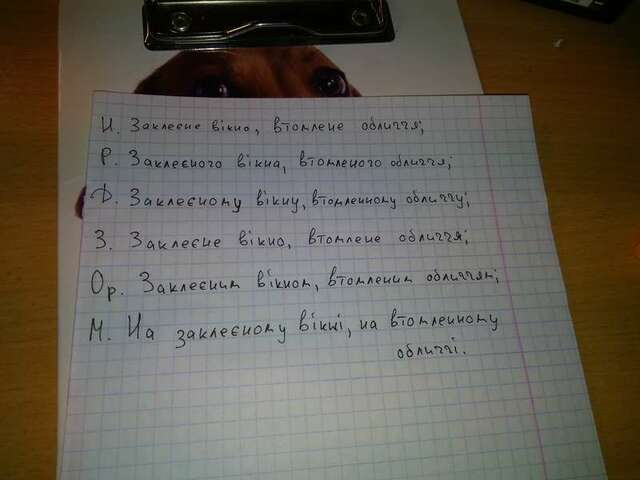 Н. Заклеєне вікно, втомлене обличчя;
Р. Заклеєного вікна, втомленого обличчя;
Д. Заклеєному вікну, втомленному обличчу;
З. Заклеєне вікно, втомлене обличчя;
Ор. Заклеєним вікном, втомленим обличчям;
М. На заклеєному вікні, на втомленному
обличчі.